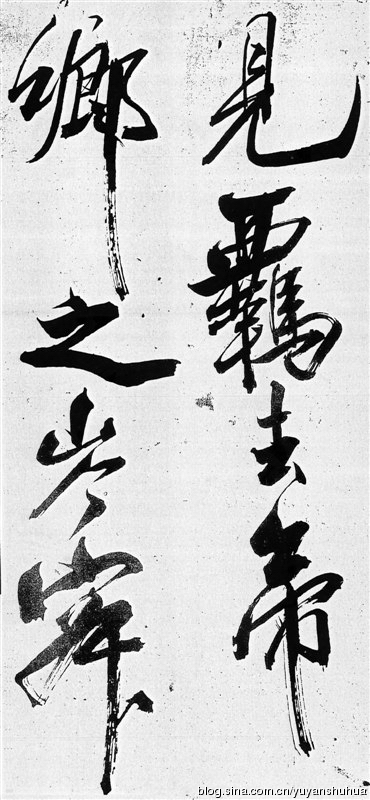 見羈去帝
鄉之岑寂
blog.sina.com.cn/yuyanshuhua